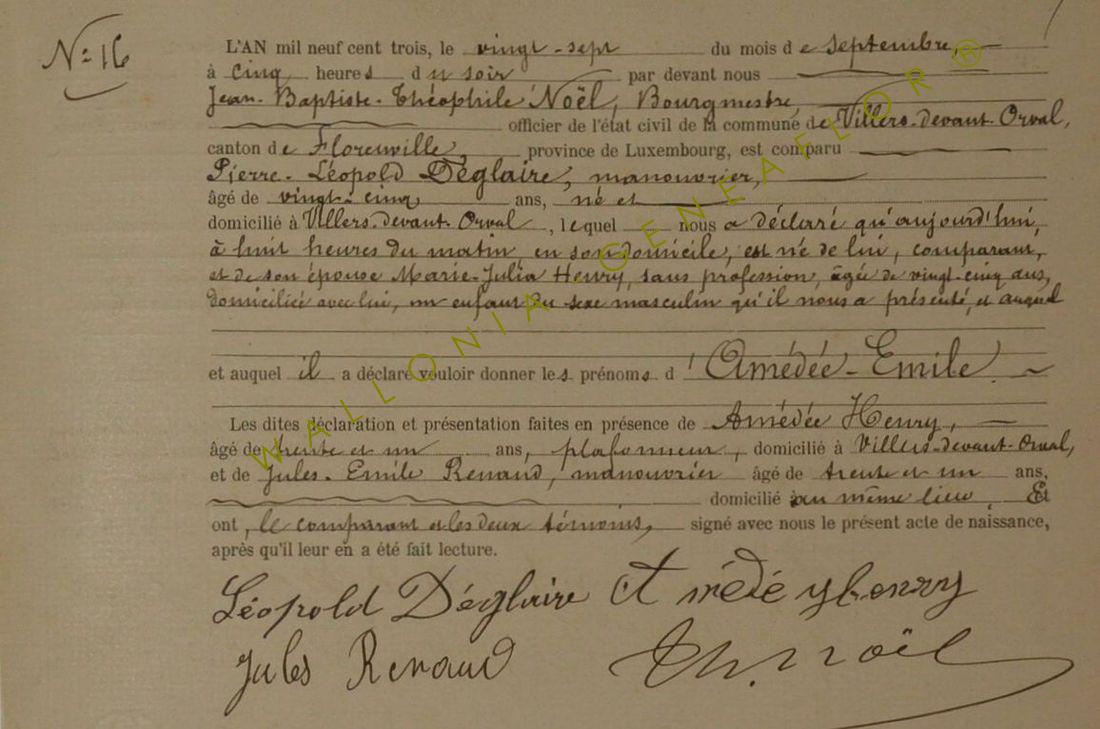 N° 16
L'AN mil neuf cent trois, le vingt-sept du mois de Septembre,
à cinq heures du soir par devant nous
Jean-Baptiste-Théophile Noël, Bourgmestre,
officier de l'état civil de la commune de Villers-devant-Orval,
canton de Florenville, province de Luxembourg, est comparu
Pierre-Léopold Déglaire, manouvrier,
âgé de vingt-cinq ans, né et
domicilié à Villers-devant-Orval, lequel nous a déclaré qu'aujourd'hui,
à huit heures du matin, en son domicile, est né de lui, comparant,
et de son épouse Marie-Julia Henry, sans profession, âgée de vingt-cinq ans,
domiciliée avec lui, un enfant du sexe masculin qu'il nous a présenté, et auquel
et auquel il a déclaré vouloir donner les prénoms d'Amédée-Emile
Les dites déclaration et présentation faites en présence de Amédée Henry,
âgé de trente et un ans, plafonneur, domicilié à Villers-devant-Orval,
et de Jules-Emile Renaud, manouvrier âgé de trente et un ans,
domicilié au même lieu Et
ont, le comparant et les deux témoins, signé avec nous le présent acte de naissance,
après qu'il leur en a été fait lecture.
Léopold Déglaire Amédé henry
Jules Renaud Th. Noël
WALLONIA GENEAFLOR ®